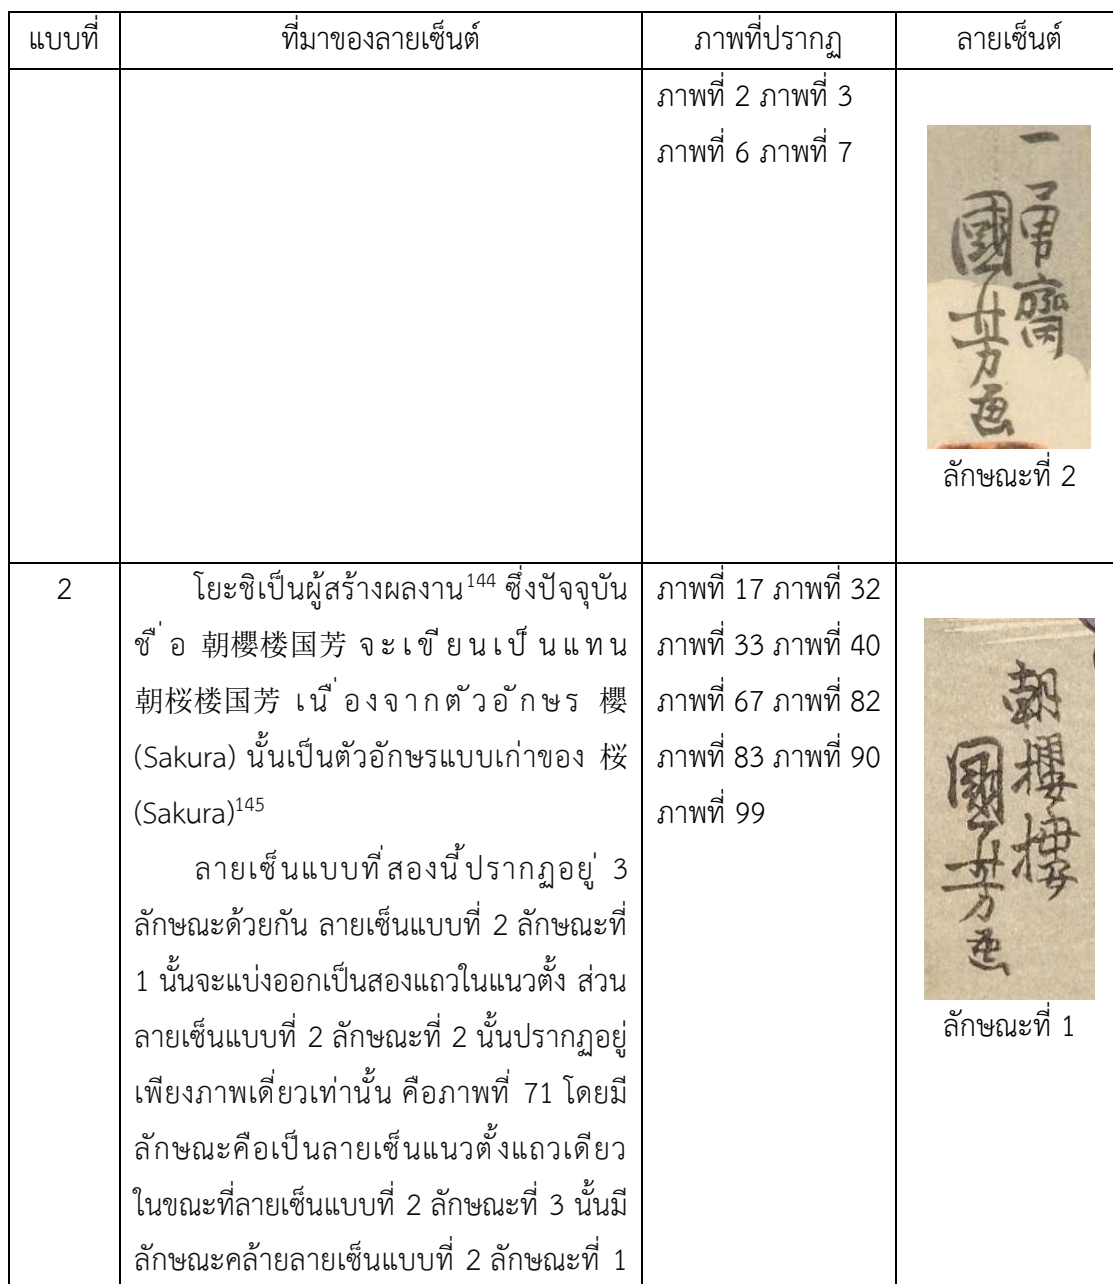 แบบที่ ที่มาของลายเซ็นต์ ภาพที่ปรากฏ ลายเซ็นต์
ภาพที่ 2 ภาพที่ 3
ภาพที่ 6 ภาพที่ 7
一勇齋
國芳画
ลักษณะที่ 2
2
โยะชิเป็นผู้สร้างผลงาน144 ซึ่งปัจจุบัน
ชื่อ 朝櫻楼国芳 จะเขียนเป็นแทน
朝桜楼国芳 เนื่องจากตัวอักษร 櫻
(Sakura) นั้นเป็นตัวอักษรแบบเก่าของ 桜
(Sakura)145
ลายเซ็นแบบที่สองนี้ปรากฏอยู่ 3
ลักษณะด้วยกัน ลายเซ็นแบบที่ 2 ลักษณะที่
1 นั้นจะแบ่งออกเป็นสองแถวในแนวตั้ง ส่วน
ลายเซ็นแบบที่ 2 ลักษณะที่ 2 นั้นปรากฏอยู่
เพียงภาพเดี่ยวเท่านั้น คือภาพที่ 71 โดยมี
ลักษณะคือเป็นลายเซ็นแนวตั้งแถวเดียว
ในขณะที่ลายเซ็นแบบที่ 2 ลักษณะที่ 3 นั้นมี
ลักษณะคล้ายลายเซ็นแบบที่ 2 ลักษณะที่ 1
ภาพที่ 17 ภาพที่ 32
ภาพที่ 33 ภาพที่ 40
ภาพที่ 67 ภาพที่ 82
ภาพที่ 83 ภาพที่ 90
ภาพที่ 99
朝櫻樓
國芳画
ลักษณะที่ 1